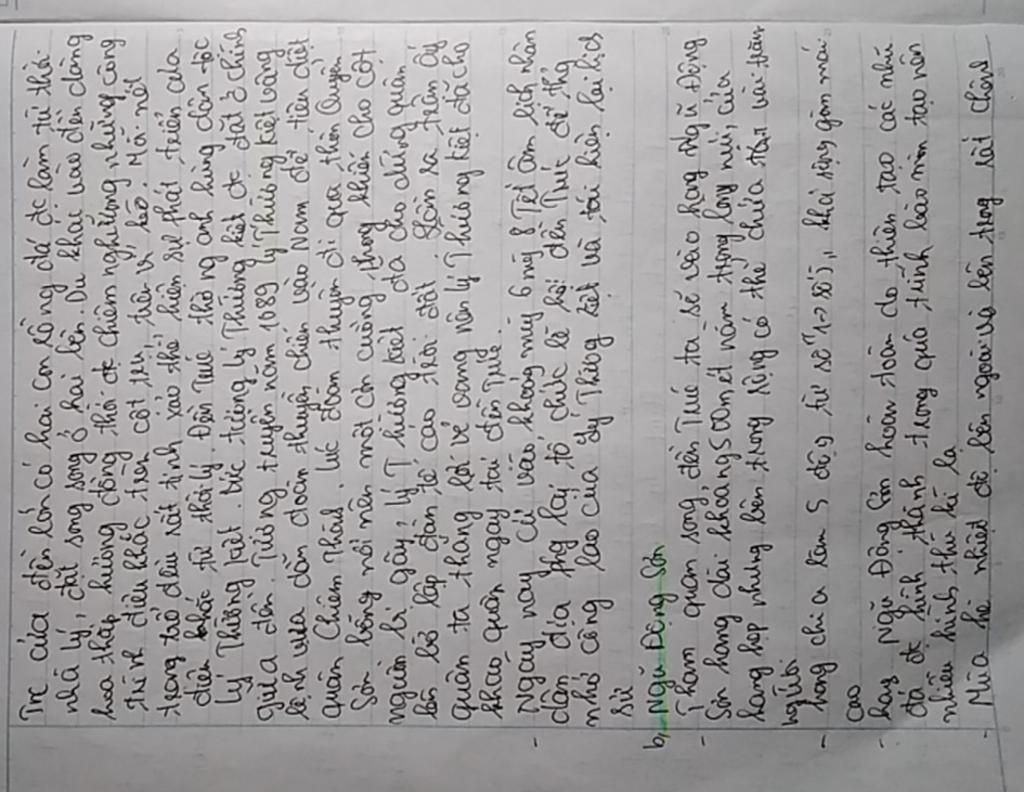 Trc của đền lớn có hai con rồng đá đc làm từ thời
nhà Lý, đặt song song ở hai bên. Du khách vào đền dâng
hoa thắp hương đồng thời đc chiêm ngưỡng những công
trình điêu khắc trên cột, trên vì kèo. Mỗi nét
trạm trổ đều rất tinh xảo thể hiện sự phát triển của
điêu khắc từ thời Lý. Đền Trúc thờ ng anh hùng dân tộc
Lý Thường Kiệt. Bức tượng Lý Thường Kiệt đc đặt ở chính
giữa đền. Tương truyền năm 1089 Lý Thường Kiệt vâng
lệnh vua dẫn đoàn thuyền chiến vào Nam để tiễn diệt
quân Chiêm Thành. Lúc đoàn thuyền đi qua thôn Quyển
Sơn bỗng nổi nên một cơn cuồng phong khiến cho cột
buồm bị gãy, Lý Thường Kiệt đã cho dừng quân
lên bờ lập đàn tế cáo trời đất. Sau trận ấy
quân ta thắng lợi vẻ vang nên Lý Thường Kiệt đã cho
khao quân ngay tại đền Trúc.
- Ngày nay cứ vào khoảng mùng 6 mùng 8 Tết âm lịch nhân
dân địa phg lại tổ chức lễ hội đền Trúc để tg
nhớ công lao của Lý Thường Kiệt và tái hiện lại lịch
sử
b, Ngũ Động Sơn
- Tham quan xong đền Trúc ta sẽ vào hang Ngũ Động
Sơn hang dài khoảng 500m, nằm trong lòng núi, cửa
hang hẹp nhưng bên trong rộng có thể chứa tới vài trăm
người
- hang chia làm 5 động từ số "1->số 5", khá rộng gồm mái
cao
- hang Ngũ Động Sơn hoàn toàn do thiên tạo các nhũ
đá đc hình thành trong quá trình bào mòn tạo nên
nhiều hình thù kì lạ
- Mùa hè nhiệt độ bên ngoài và bên trong rất chênh